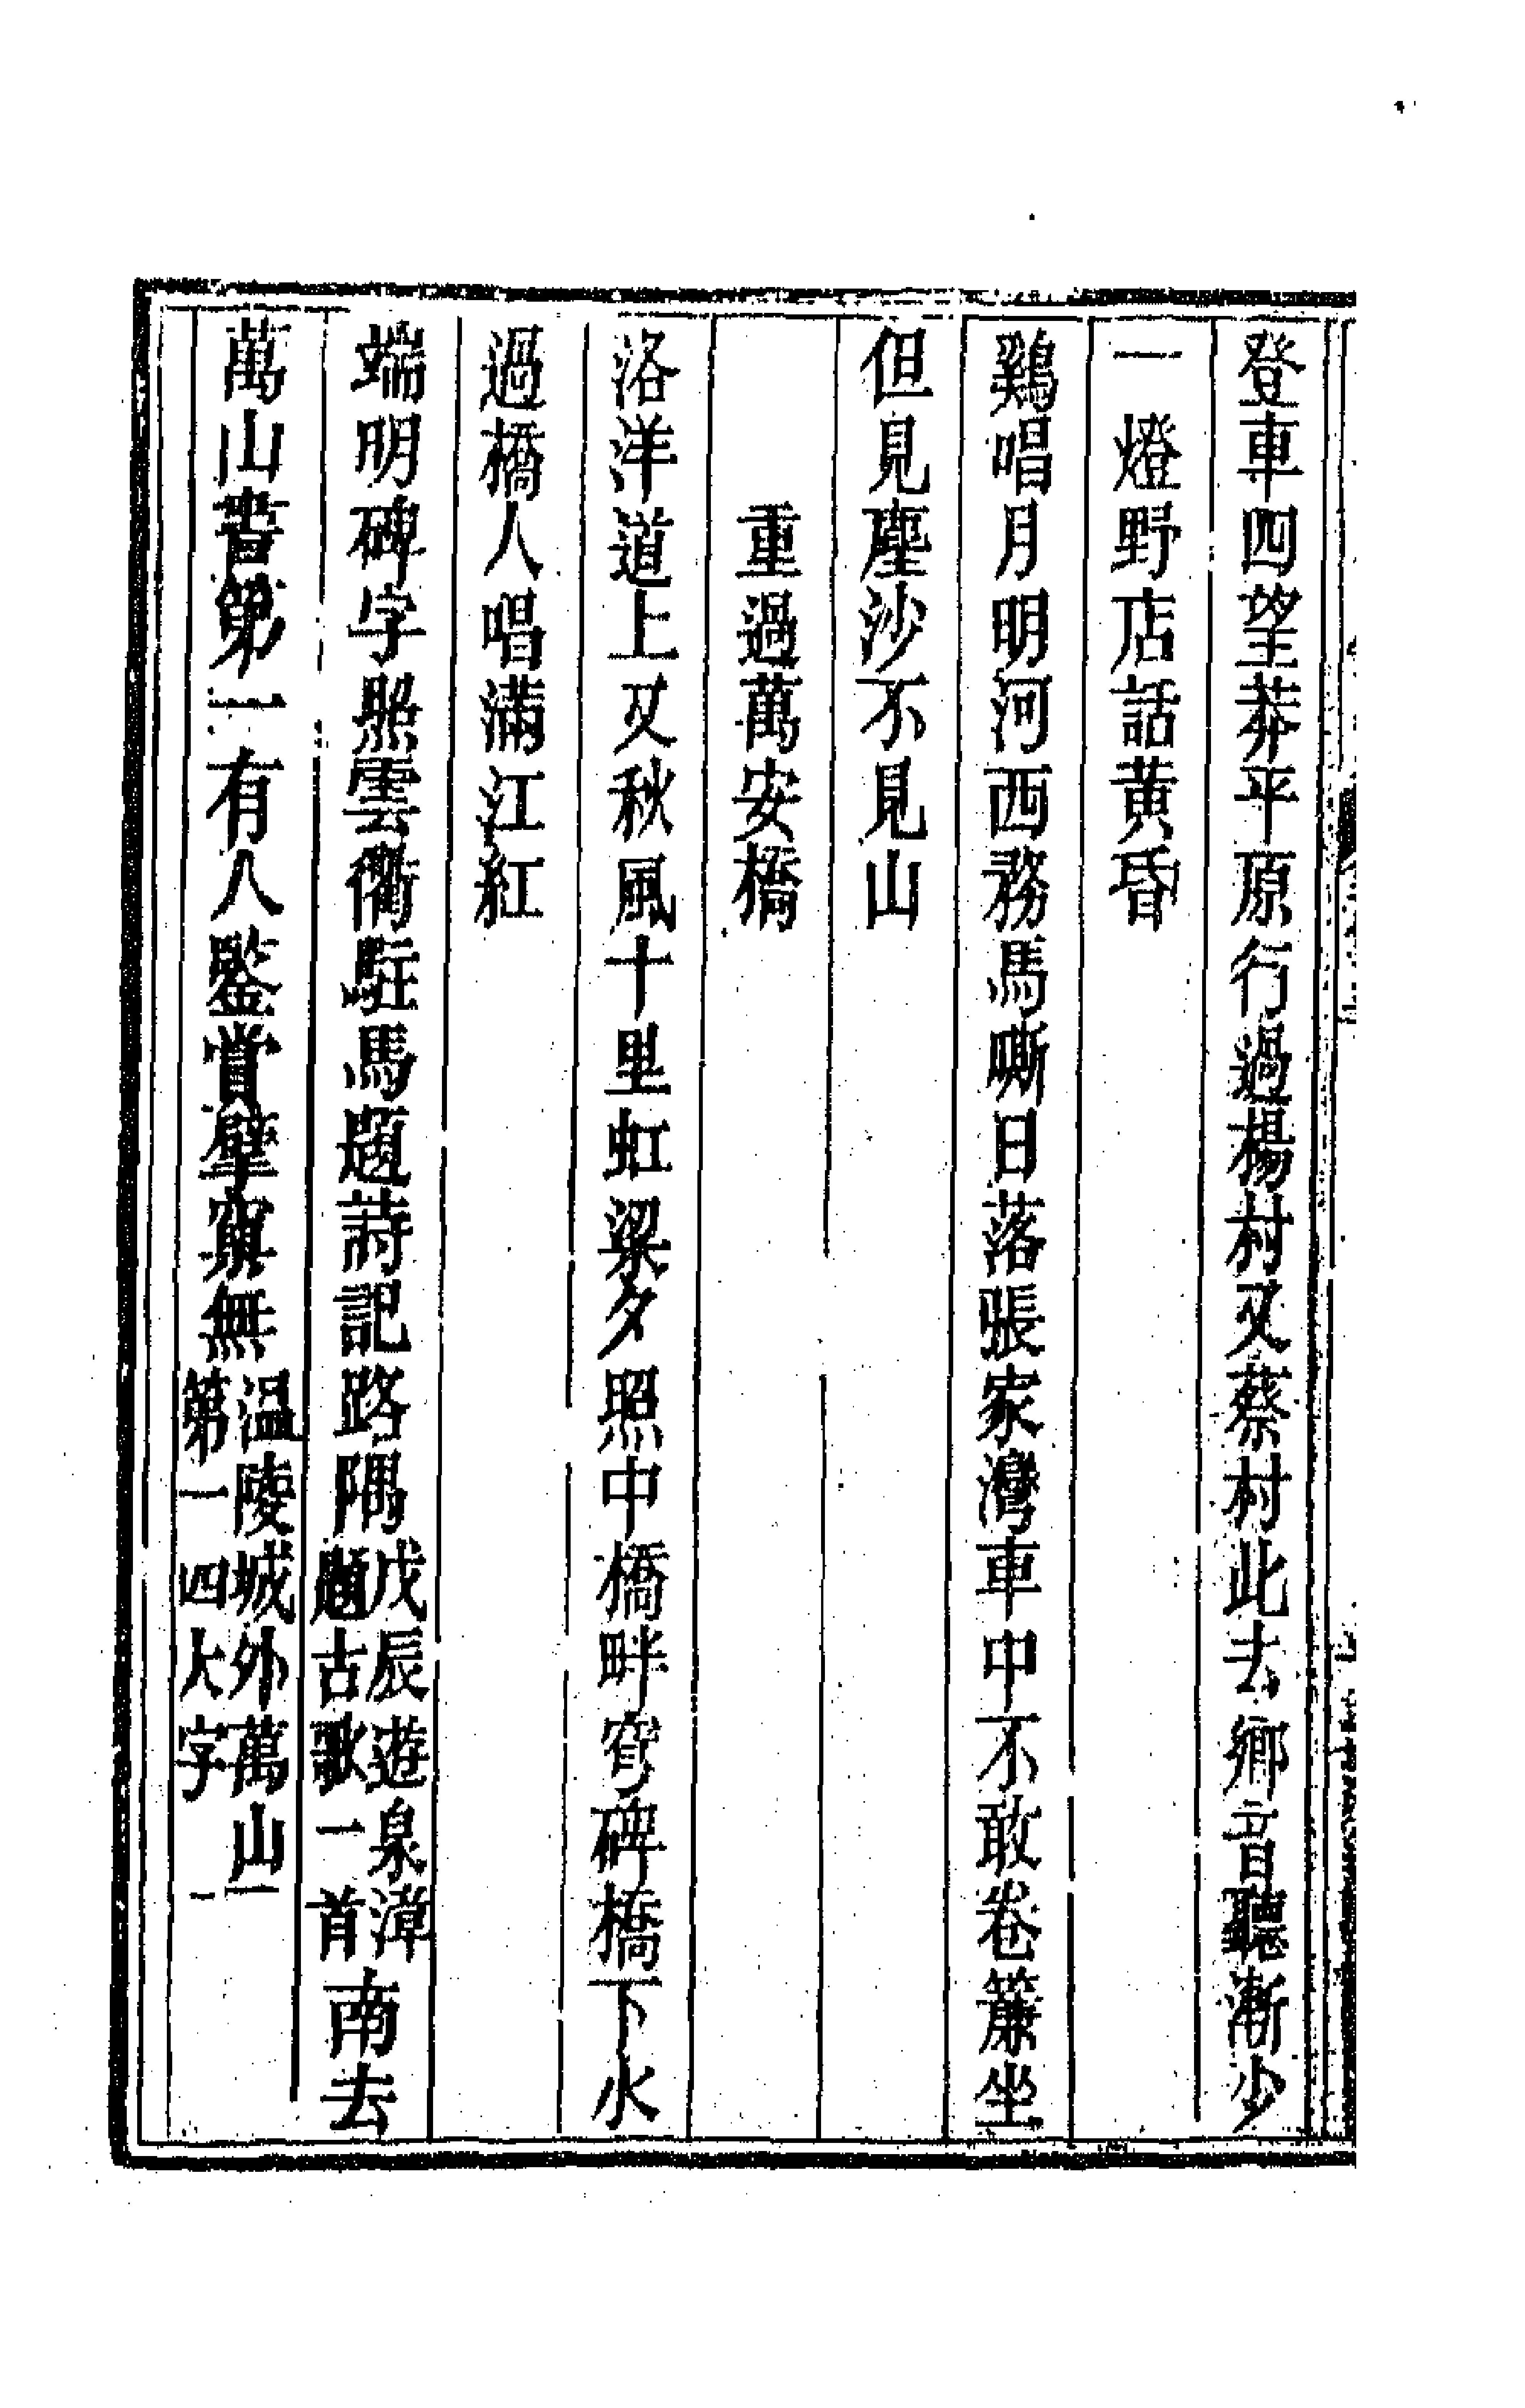 登車四望莽平原行過楊村又蔡村此去鄉音聽漸少
一燈野店話黃昏
鷄唱月明河西務馬嘶日落張家灣車中不敢卷簾坐
但見塵沙不見山
重過萬安橋
洛洋道上又秋風十里虹梁夕照中橋畔穹碑橋下水
過橋人唱滿江紅
端明碑字照雲衢駐馬題詩記路隅戊辰遊泉漳題古歌一首南去
萬山書第一有人鑒賞擘窠無溫陵城外萬山一第一四大字